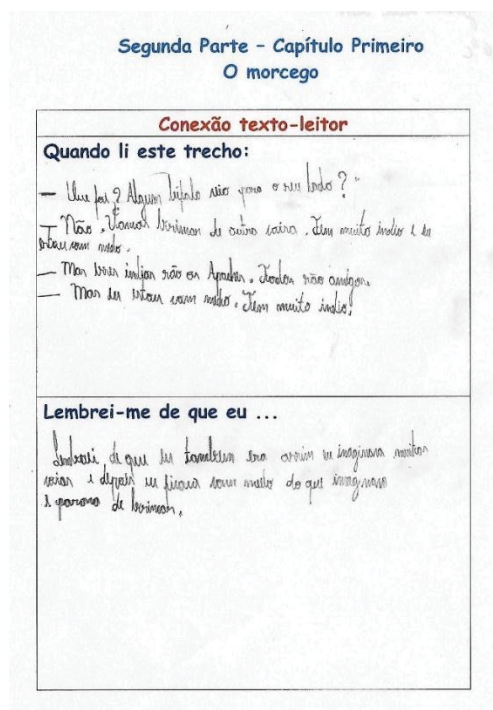 Segunda Parte – Capítulo Primeiro
O morcego
Conexão texto-leitor
Quando li este trecho:
— Que foi? Algum búfalo veio para o seu lado?"
— Não. Vamos brincar de outra coisa. Tem muito índio e eu
estou com medo.
— Mas esses índios são os Apaches. Todos são amigos.
— Mas eu estou com medo. Tem muito índio.
Lembrei-me de que eu ...
Lembrei de que eu também era assim eu imaginava muitas
coisas e depois eu ficava com medo do que imaginava
e parava de brincar.